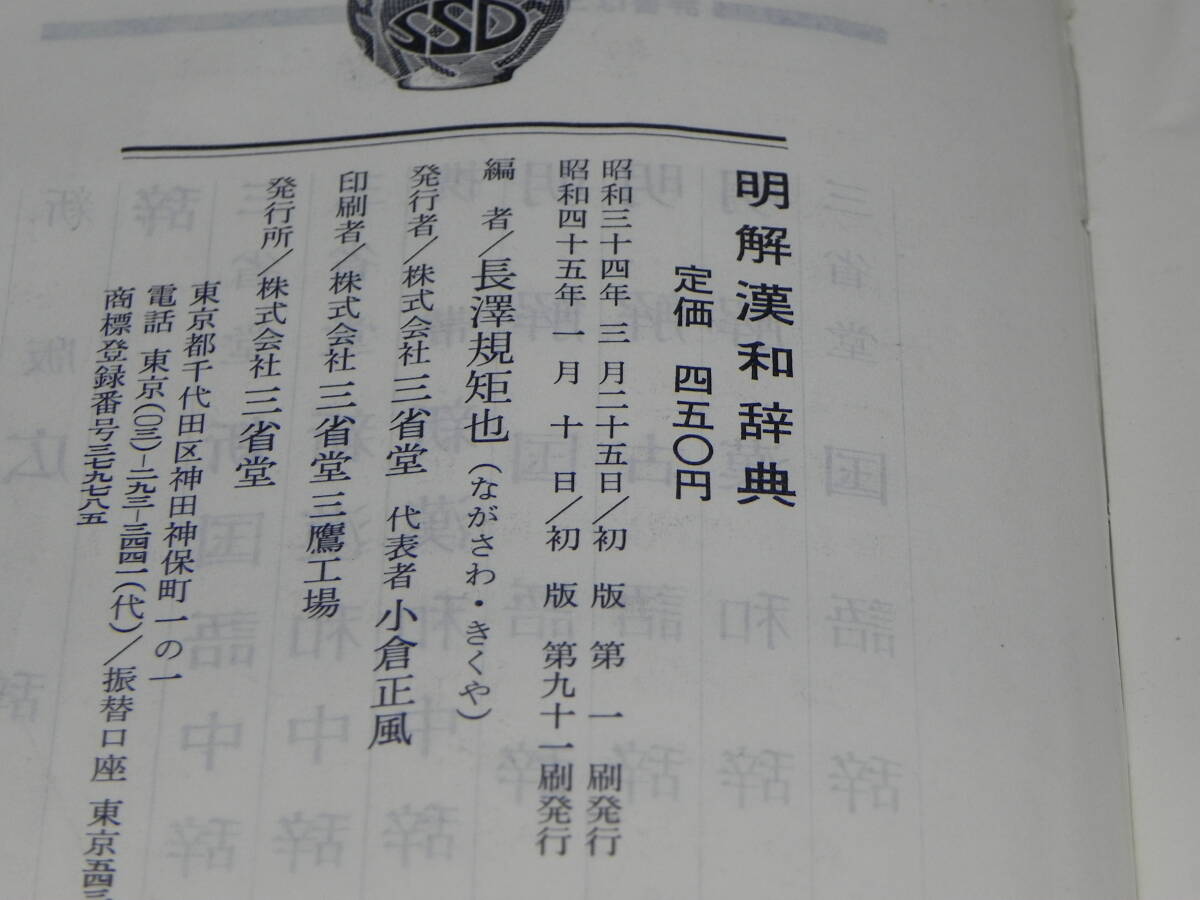 SSD
明解漢和辞典
定価 四五〇円
昭和三十四年 三月二十五日/初 版 第 一 刷発行
昭和四十五年 一月 十 日/初 版 第九十一刷発行
編 者/長澤規矩也(ながさわ・きくや)
発行者/株式会社 三省堂 代表者 小倉正風
印刷者/株式会社 三省堂 三鷹工場
発行所/株式会社 三省堂
東京都千代田区神田神保町一の一
電話 東京(〇三)―二九三―三四四一(代)/振替口座 東京五四三
商標登録番号三七九七八五